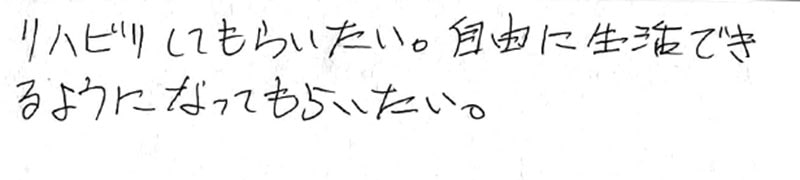 リハビリしてもらいたい。自由に生活でき
るようになってもらいたい。